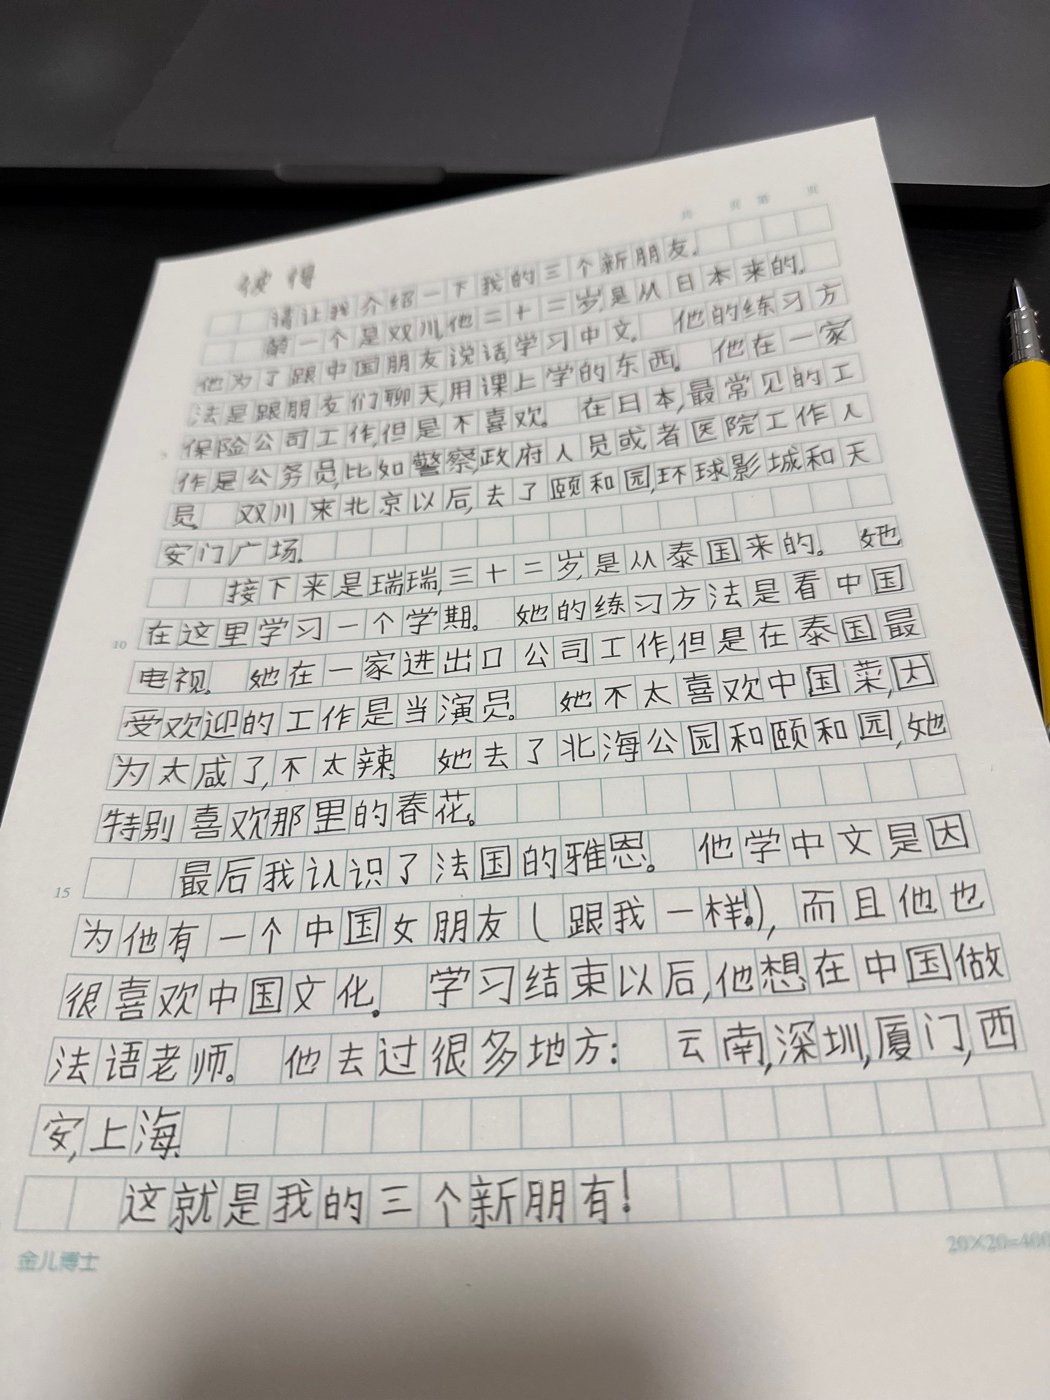 共 页 第 页
彼得
请让我介绍一下我的三个新朋友.
第一个是双川,他二十三岁,是从日本来的.
他为了跟中国朋友说话,学习中文. 他的练习方
法是跟朋友们聊天,用课上学的东西. 他在一家
5 保险公司工作,但是不喜欢. 在日本,最常见的工
作是公务员,比如警察,政府人员或者医院工作人
员. 双川来北京以后,去了颐和园,环球影城和天
安门广场.
接下来是瑞瑞,三十二岁,是从泰国来的. 她
10 在这里学习一个学期. 她的练习方法是看中国
电视. 她在一家进出口公司工作,但是在泰国最
受欢迎的工作是当演员. 她不太喜欢中国菜,因
为太咸了,不太辣. 她去了北海公园和颐和园,她
特别喜欢那里的春花.
15 最后我认识了法国的雅恩. 他学中文是因
为他有一个中国女朋友(跟我一样!),而且他也
很喜欢中国文化. 学习结束以后,他想在中国做
法语老师. 他去过很多地方: 云南,深圳,厦门,西
安,上海.
这就是我的三个新朋有!
金儿博士 20×20=400